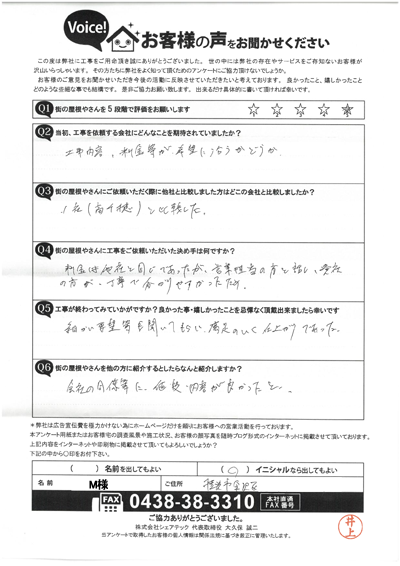 Voice!
お客様の声をお聞かせください
この度は弊社に工事をご用命頂き誠にありがとうございました。世の中には弊社の存在やサービスをご存知ないお客様が
沢山いらっしゃいます。その方たちに弊社をよく知って頂くためのアンケートにご協力下げないでしょうか。
お客様のご意見をお聞かせいただき今後の活動に反映させていただきたいと考えております。良かったこと、嬉しかったこと
どのような些細な事でも結構です。是非ご協力お願い致します。出来るだけ具体的に書いて頂ければ幸いです。
Q1 街の屋根やさんを5段階で評価をお願いします
☆ ☆ ☆ ☆ ☆
Q2 当初、工事を依頼する会社にどんなことを期待されていましたか？
工事内容、料金等が希望に
かどうか。
Q3 街の屋根やさんにご依頼いただく際に他社と比較しました方はどこの会社と比較しましたか？
1社( )と比較した。
Q4 街の屋根やさんに工事をご依頼いただいた決め手は何ですか？
料金は他社と同じであったが、営業担当の方と話し、
の方が、丁寧で分かりやすかったため。
Q5 工事が終わってみていかがですか？良かった事・嬉しかったことを忌憚なく頂戴出来ましたら幸いです
希望等を聞いてもらい、満足のいく仕上がりであった。
Q6 街の屋根やさんを他の方に紹介するとしたらなんと紹介しますか？
会社の同僚等に、価格・内容が良かったと。
＊弊社は広告宣伝費を極力かけない為にホームページだけを頼りにお客様への営業活動を行っております。
本アンケート用紙またはお客様宅の調査風景や施工状況、お客様の顔写真を随時ブログ形式のインターネットに掲載させて頂いております。
上記内容をインターネットや印刷物に掲載させて頂いてもよろしいでしょうか？
下記の中から〇印をお付け下さい。
( ) 名前を出してもよい ( ○ ) イニシャルなら出してもよい
名前 M様 ご住所
FAX 0438-38-3310 本社直通 FAX番号
ご協力ありがとうございました。
株式会社シェアテック 代表取締役 大久保 誠二
当アンケートで取得したお客様の個人情報は関係法規に基づき厳正に管理いたします。
井上